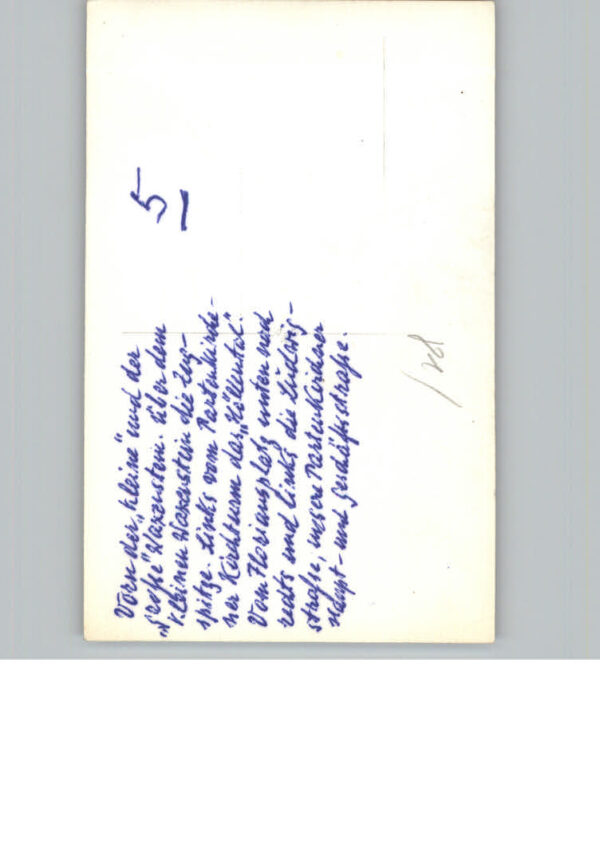 Vorn der „kleine" und der
„Große" Waxenstein. über dem
kleinen Waxenstein die Zug-
spitze. Links vom Partenkirche-
ner Kirchturm das „Höllental".
Vom Floriansplatz unten nach
rechts und links die Ludwig-
straße, unsere Partenkirchner
Haupt- und Geschäftsstraße.
5